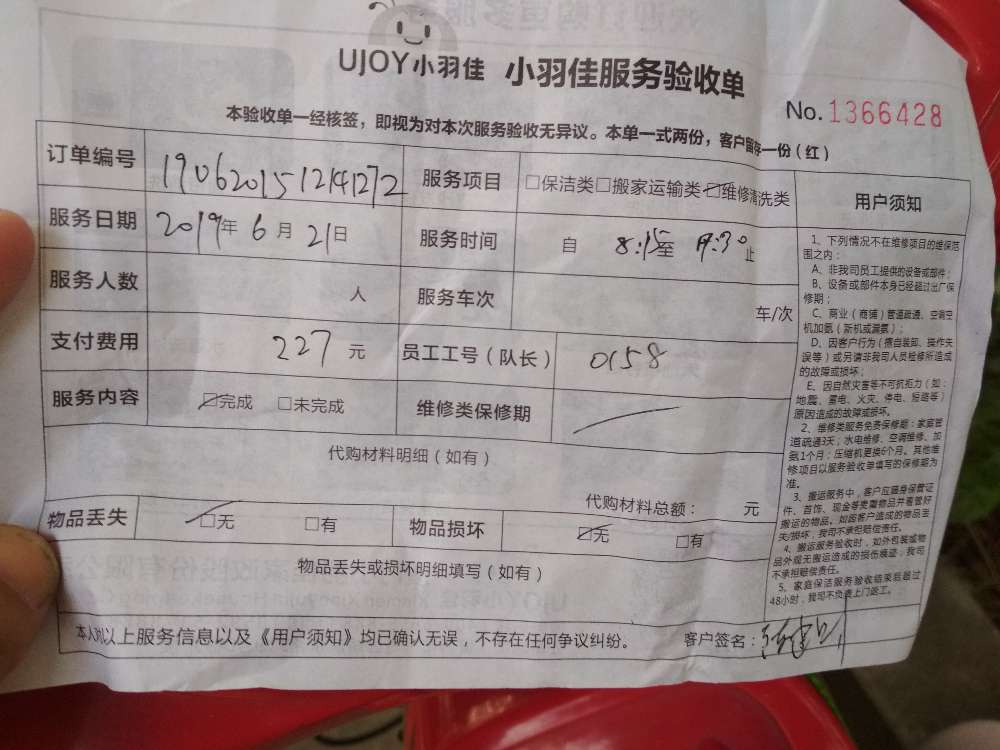 UJOY小羽佳 小羽佳服务验收单
No. 1366428
本验收单一经核签，即视为对本次服务验收无异议。本单一式两份，客户留存一份（红）
订单编号 服务项目 □保洁类□搬家运输类☑维修清洗类
服务日期 2019年 6 月 21日 服务时间 自 8:15至 17:30止
服务人数 人 服务车次 车/次
支付费用 227 元 员工工号（队长） 0158
服务内容 ☑完成 □未完成 维修类保修期
代购材料明细（如有）
代购材料总额： 元
物品丢失 ☑无 □有 物品损坏 ☑无 □有
物品丢失或损坏明细填写（如有）
本人对以上服务信息以及《用户须知》均已确认无误，不存在任何争议纠纷。 客户签名：
用户须知
1、下列情况不在维修项目的维保范
围之内：
A、非我司员工提供的设备或部件；
B、设备或部件本身已经超过出厂保
修期；
C、商业（商铺）管道疏通、空调空
机加氨（新机或漏氨）；
D、因客户行为（擅自装卸、操作失
误等）或另请非我司人员检修所造成
的故障或损坏；
E、因自然灾害等不可抗拒力（如：
地震、雷电、火灾、停电、短路等）
原因造成的故障或损坏。
2、维修类服务免费保修期：家庭管
道疏通3天；水电维修、空调维修、加
氨1个月；压缩机更换6个月。其他维
修项目以服务验收单填写的保修期为
准。
3、搬运服务中，客户应随身保管证
件、首饰、现金等贵重物品并看管好
搬运的物品。如因客户造成的物品丢
失/损坏，我司不承担赔偿责任。
4、搬运服务验收时，如外包装或物
品外观无搬运造成的损伤痕迹，我司
不承担赔偿责任。
5、家庭保洁服务验收结束后超过
48小时，我司不负责上门返工。